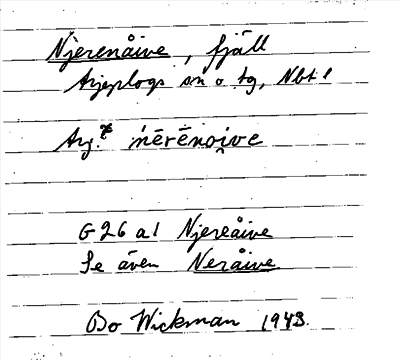 Njerenåive, fjäll
Arjeplogs sn o tg, Nbt l
Arj. ńērēnoi̯ve
G 26 a 1 Njereåive
Se även Neråive
Bo Wickman 1943.